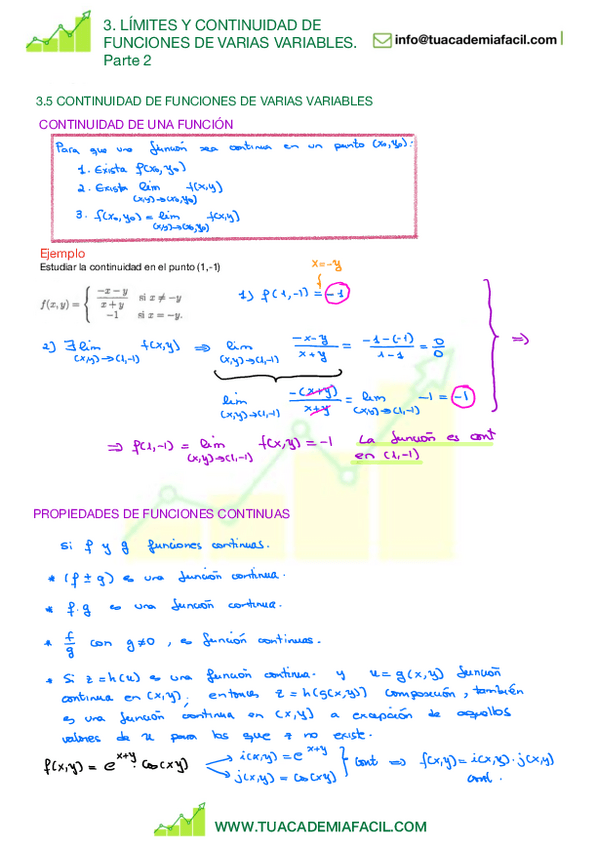 3. LÍMITES Y CONTINUIDAD DE
FUNCIONES DE VARIAS VARIABLES.
Parte 2
info@tuacademiafacil.com
3.5 CONTINUIDAD DE FUNCIONES DE VARIAS VARIABLES
CONTINUIDAD DE UNA FUNCIÓN
Para que una función sea continua en un punto (x₀,y₀):
1. Exista f(x₀,y₀)
2. Exista lim f(x,y)
(x,y)→(x₀,y₀)
3. f(x₀,y₀) = lim f(x,y)
(x,y)→(x₀,y₀)
Ejemplo
Estudiar la continuidad en el punto (1,-1)
f(x,y) = { (-x-y)/(x+y) si x ≠ -y
-1 si x = -y.
x=-y
1) f(1,-1) = -1
2) ∃ lim f(x,y) ⇒ lim (-x-y)/(x+y) = (-1-(-1))/(1-1) = 0/0 ⇒
(x,y)→(1,-1) (x,y)→(1,-1)
lim -(x+y)/(x+y) = lim -1 = -1
(x,y)→(1,-1) (x,y)→(1,-1)
⇒ f(1,-1) = lim f(x,y) = -1 La función es cont
(x,y)→(1,-1) en (1,-1)
PROPIEDADES DE FUNCIONES CONTINUAS
Si f y g funciones continuas.
* (f ± g) es una función continua.
* f.g es una función continua.
* f/g con g≠0, es función continuas.
* Si z=h(u) es una función continua. y u=g(x,y) función
continua en (x,y), entonces z=h(g(x,y)) composición, también
es una función continua en (x,y) a excepción de aquellos
valores de u para los que z no existe.
f(x,y) = e^(x+y) · cos(xy) → i(x,y) = e^(x+y) } cont ⇒ f(x,y) = i(x,y) · j(x,y)
→ j(x,y) = cos(xy) cont.
WWW.TUACADEMIAFACIL.COM